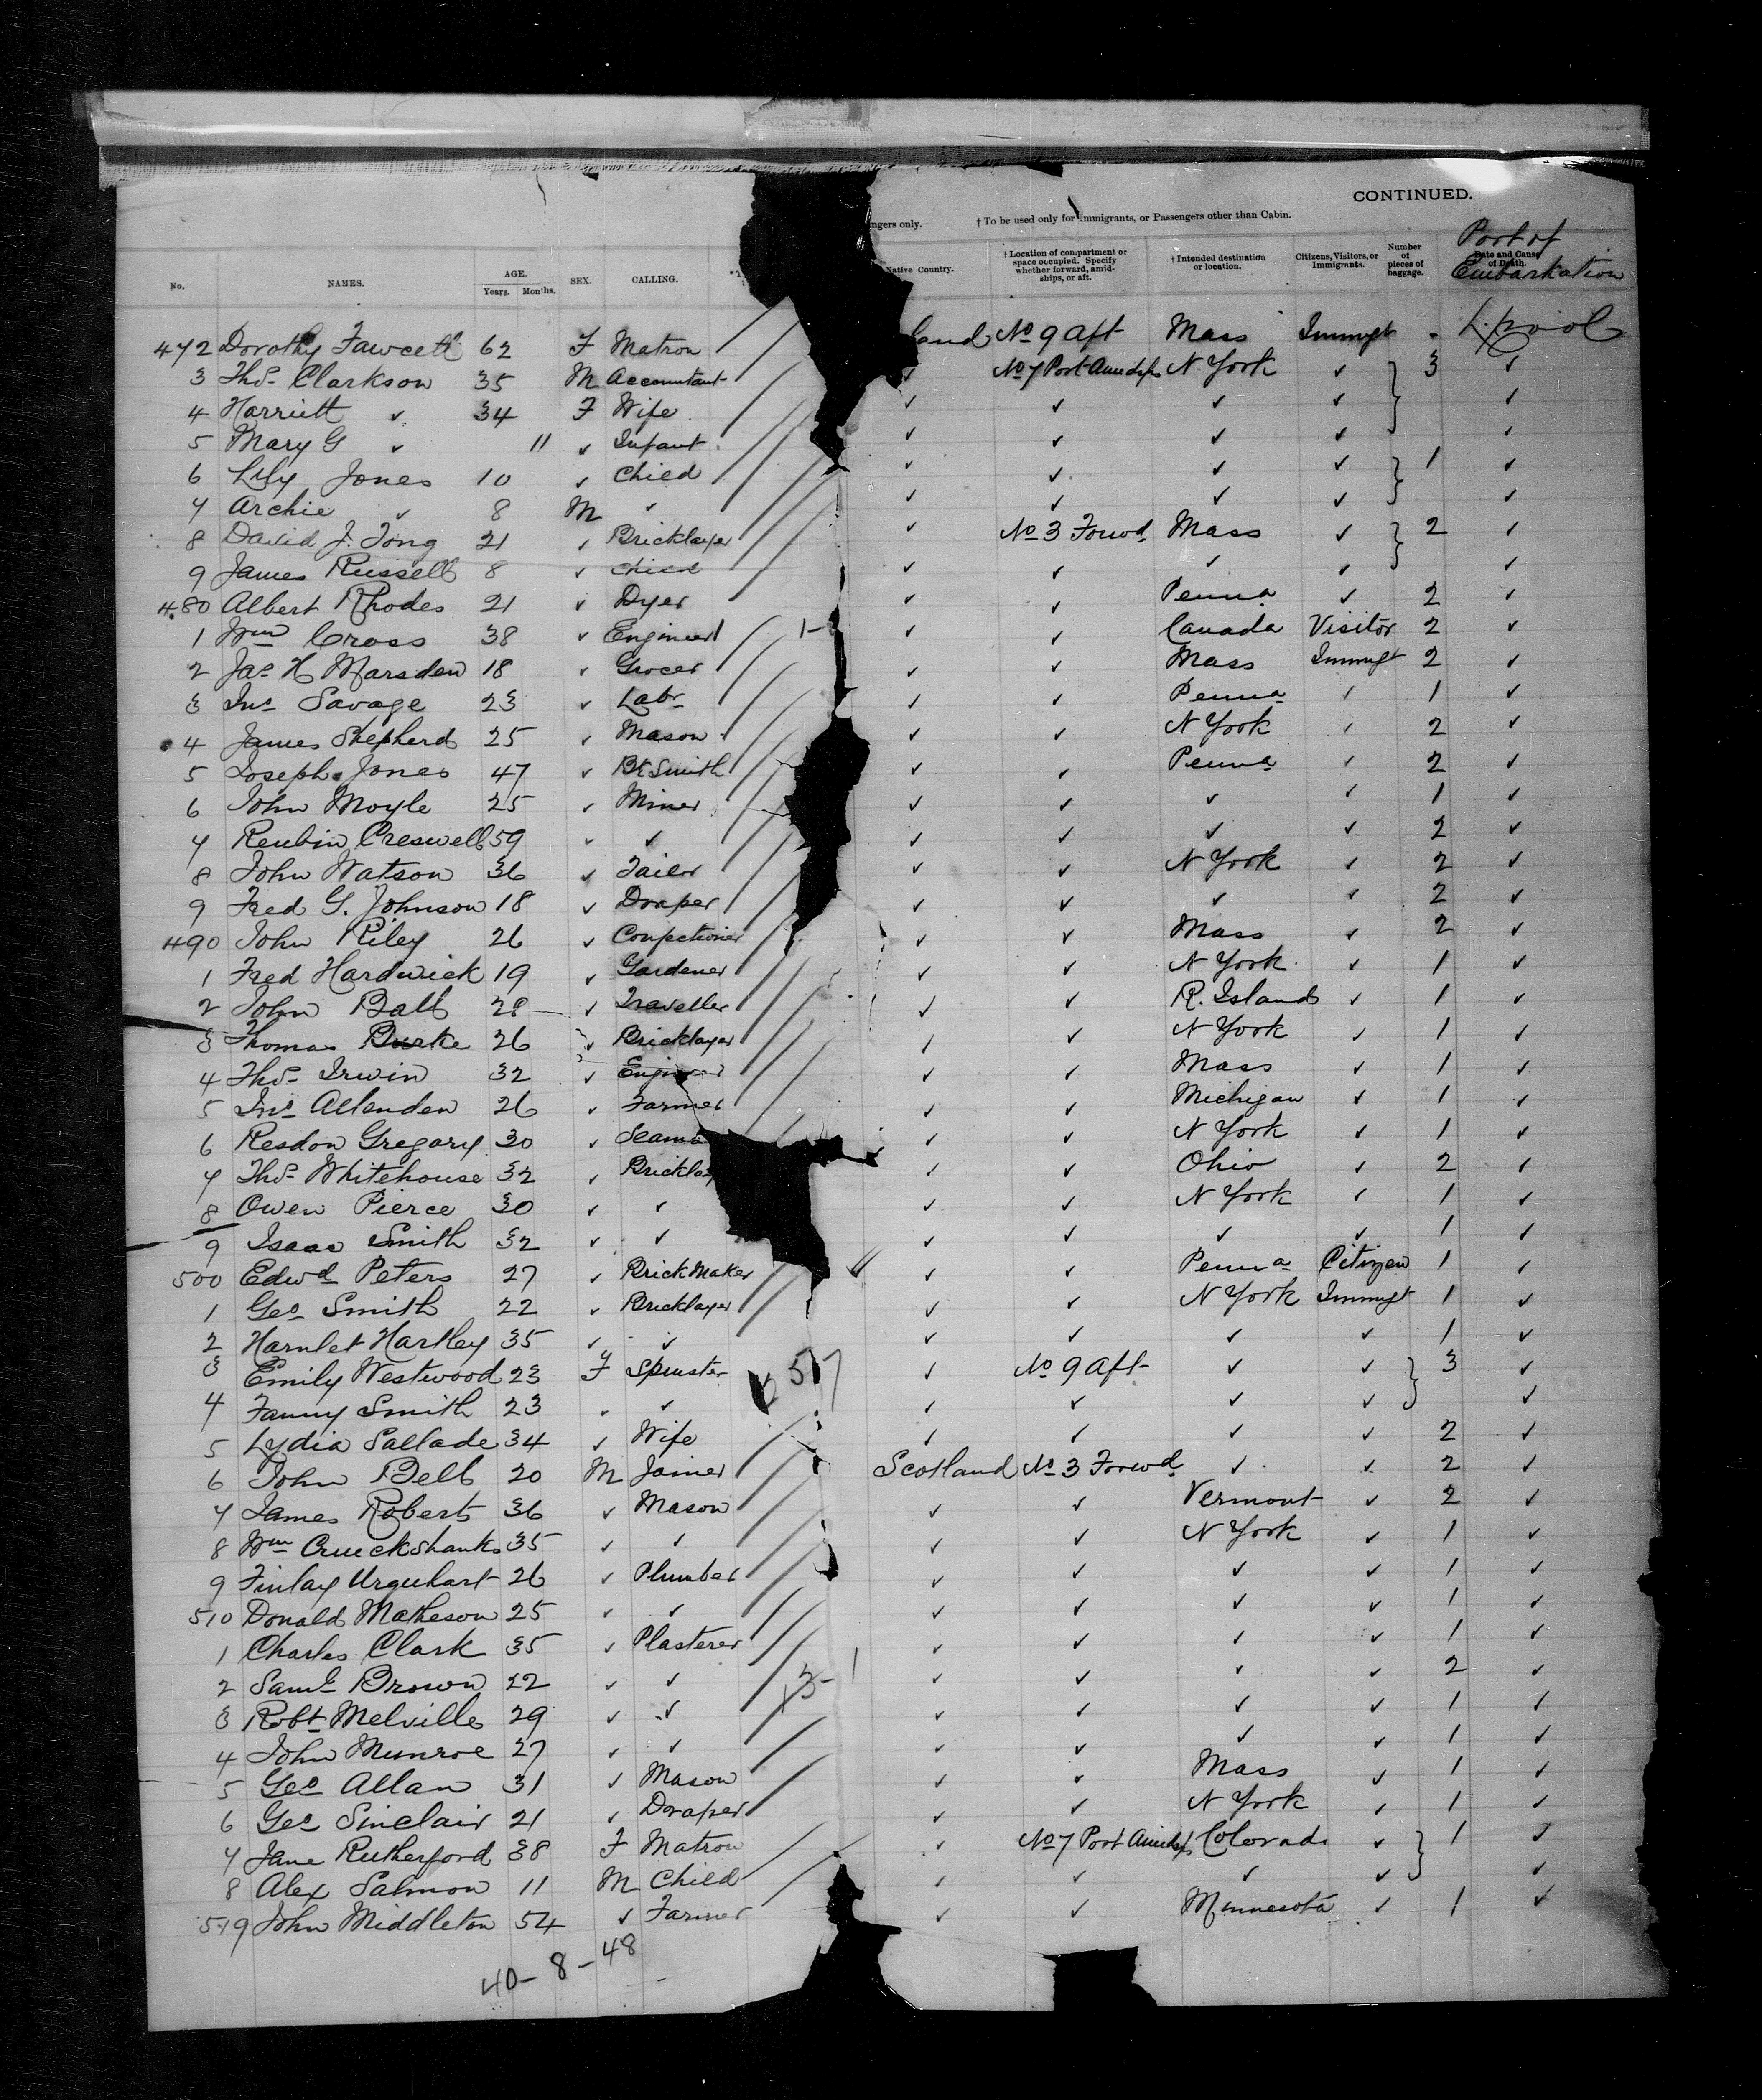 CONTINUED.
ngers only. † To be used only for Immigrants, or Passengers other than Cabin.
Port of Embarkation
No. NAMES. AGE. Years. Months. SEX. CALLING. Native Country. † Location of compartment or space occupied. Specify whether forward, amidships, or aft. † Intended destination or location. Citizens, Visitors, or Immigrants. Number of pieces of baggage. Date and Cause of Death.
472 Dorothy Fawcett 62 F Matron land No 9 Aft Mass Immgt - L.pool
3 Thos. Clarkson 35 M Accountant ✓ No 7 Port Amidsps N York ✓ 3 ✓
4 Harriett ✓ 34 F Wife ✓ ✓ ✓ ✓ ✓
5 Mary G ✓ 11 ✓ Infant ✓ ✓ ✓ ✓ ✓
6 Lily Jones 10 ✓ Child ✓ ✓ ✓ ✓ 1 ✓
7 Archie ✓ 8 M ✓ ✓ ✓ ✓ ✓ ✓
8 David J. Tong 21 ✓ Bricklayer ✓ No 3 Forwd Mass ✓ 2 ✓
9 James Russell 8 ✓ Child ✓ ✓ ✓ ✓ ✓
480 Albert Rhodes 21 ✓ Dyer ✓ ✓ Penna ✓ 2 ✓
1 Wm Cross 38 ✓ Engineer 1- ✓ ✓ Canada Visitor 2 ✓
2 Jas H Marsden 18 ✓ Grocer ✓ ✓ Mass Immgt 2 ✓
3 Jno Savage 23 ✓ Labr ✓ ✓ Penna ✓ 1 ✓
4 James Shepherd 25 ✓ Mason ✓ ✓ N York ✓ 2 ✓
5 Joseph Jones 47 ✓ Bk Smith ✓ ✓ Penna ✓ 2 ✓
6 John Moyle 25 ✓ Miner ✓ ✓ ✓ ✓ 1 ✓
7 Reubin Creswell 59 ✓ ✓ ✓ ✓ ✓ ✓ 2 ✓
8 John Watson 36 ✓ Tailor ✓ ✓ N York ✓ 2 ✓
9 Fred G. Johnson 18 ✓ Draper ✓ ✓ ✓ ✓ 2 ✓
490 John Riley 26 ✓ Confectioner ✓ ✓ Mass ✓ 2 ✓
1 Fred Hardwick 19 ✓ Gardener ✓ ✓ N York ✓ 1 ✓
2 John Ball 28 ✓ Traveller ✓ ✓ R. Island ✓ 1 ✓
3 Thomas Burke 26 ✓ Bricklayer ✓ ✓ N York ✓ 1 ✓
4 Thos. Irwin 32 ✓ Engineer ✓ ✓ Mass ✓ 1 ✓
5 Jno Allenden 26 ✓ Farmer ✓ ✓ Michigan ✓ 1 ✓
6 Resdon Gregary 30 ✓ Seama ✓ ✓ N York ✓ 1 ✓
7 Thos. Whitehouse 32 ✓ Bricklay ✓ ✓ Ohio ✓ 2 ✓
8 Owen Pierce 30 ✓ ✓ ✓ ✓ N York ✓ 1 ✓
9 Isaac Smith 32 ✓ ✓ ✓ ✓ ✓ ✓ 1 ✓
500 Edwd Peters 27 ✓ Brick Maker ✓ ✓ Penna Citizen 1 ✓
1 Geo Smith 22 ✓ Bricklayer ✓ ✓ N York Immgt 1 ✓
2 Hamlet Hartley 35 ✓ ✓ ✓ ✓ ✓ ✓ 1 ✓
3 Emily Westwood 23 F Spinster ✓ No 9 Aft ✓ ✓ 3 ✓
4 Fanny Smith 23 ✓ ✓ ✓ ✓ ✓ ✓ ✓
5 Lydia Sallade 34 ✓ Wife ✓ ✓ ✓ ✓ 2 ✓
6 John Bell 20 M Joiner Scotland No 3 Forwd ✓ ✓ 2 ✓
7 James Roberts 36 ✓ Mason ✓ ✓ Vermont ✓ 2 ✓
8 Wm Cruickshanks 35 ✓ ✓ ✓ ✓ N York ✓ 1 ✓
9 Finlay Urquhart 26 ✓ Plumber ✓ ✓ ✓ ✓ 1 ✓
510 Donald Matheson 25 ✓ ✓ ✓ ✓ ✓ ✓ 1 ✓
1 Charles Clark 35 ✓ Plasterer ✓ ✓ ✓ ✓ 1 ✓
2 Saml Brown 22 ✓ ✓ ✓ ✓ ✓ ✓ 2 ✓
3 Robt Melville 29 ✓ ✓ ✓ ✓ ✓ ✓ 1 ✓
4 John Munroe 27 ✓ ✓ ✓ ✓ ✓ ✓ 1 ✓
5 Geo Allan 31 ✓ Mason ✓ ✓ Mass ✓ 1 ✓
6 Geo Sinclair 21 ✓ Draper ✓ ✓ N York ✓ 1 ✓
7 Jane Rutherford 38 F Matron ✓ No 7 Port Amidsps Colorado ✓ 1 ✓
8 Alex Salmon 11 M Child ✓ ✓ ✓ ✓ ✓
519 John Middleton 54 ✓ Farmer ✓ ✓ Minnesota ✓ 1 ✓
40-8-48